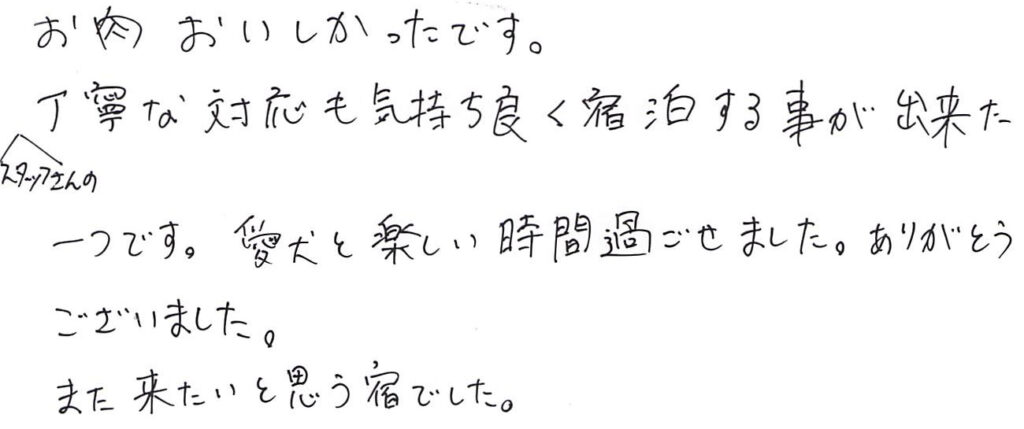 お肉 おいしかったです。
丁寧な対応も気持ち良く宿泊する事が出来た
スタッフさんの
一つです。愛犬と楽しい時間過ごせました。ありがとう
ございました。
また来たいと思う宿でした。